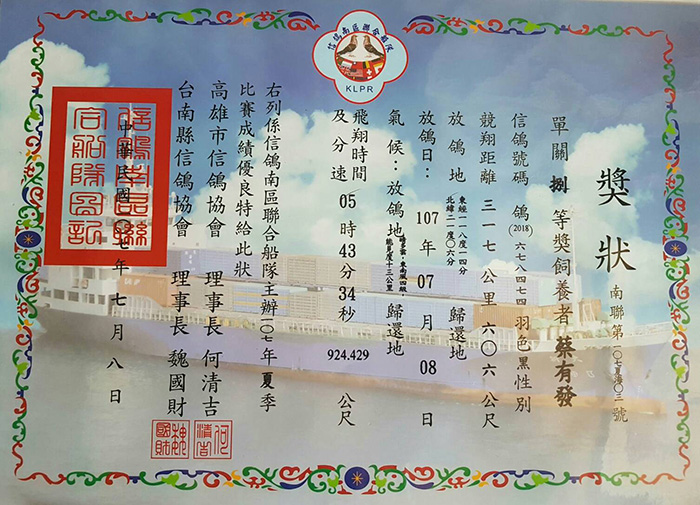 信鴿南區聯合船隊
KLPR
獎狀
南聯第一〇七夏海〇三號
單關 捌 等獎飼養者 蔡有發
信鴿號碼 鴿(2018)六七八四七四羽色黑性別
競翔距離 三一七公里六〇六公尺
放鴿地 東經一一八度一四分 北緯二一度〇六分 歸還地
放鴿日：107年07月08日
氣候：放鴿地 晴多雲，東南風四級 能見度十三公里 歸還地
飛翔時間及分速 05時43分34秒 924.429 公尺
右列係信鴿南區聯合船隊主辦一〇七年夏季
比賽成績優良特給此狀
高雄市信鴿協會 理事長 何清吉
台南縣信鴿協會 理事長 魏國財
中華民國一〇七年七月八日
信鴿南區聯合船隊圖記
何清吉
魏國財